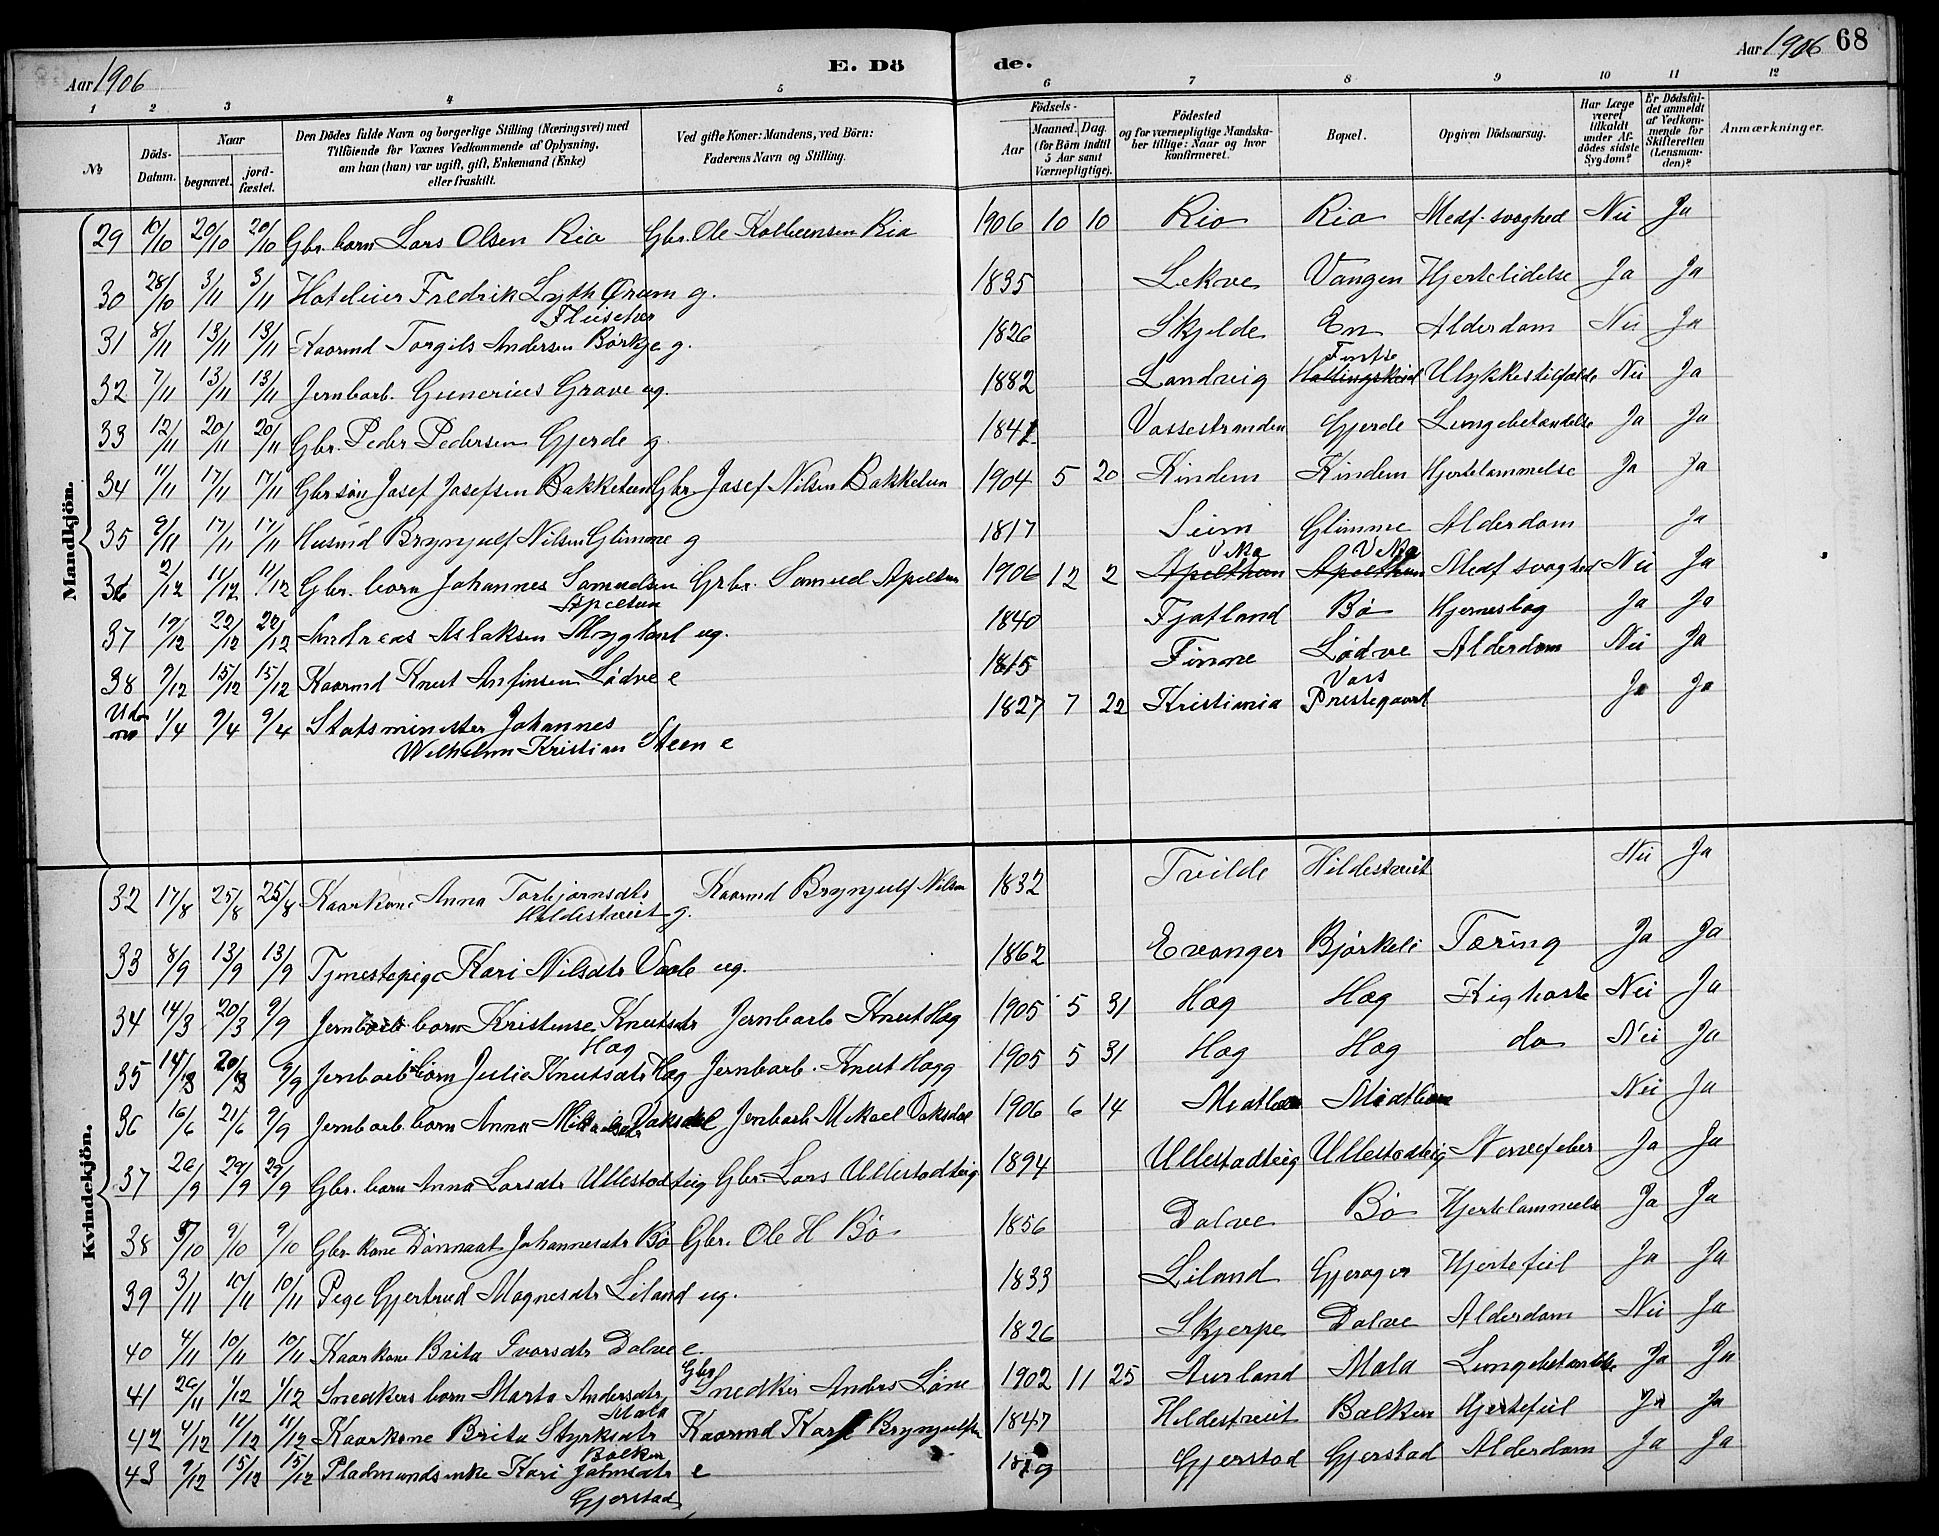 Aar 1906
E. Dö de.
Aar 1906 68
1 2 3 4 5 6 7 8 9 10 11 12
No
Döds-Datum.
Naar begravet. jordfæstet.
Den Dödes fulde Navn og borgerlige Stilling (Næringsvei) med Tilföiende for Voxnes Vedkommende af Oplysning, om han (hun) var ugift, gift, Enkemand (Enke) eller fraskilt.
Ved gifte Koner: Mandens, ved Börn: Faderens Navn og Stilling.
Födsels- Aar Maaned. Dag. (for Börn indtil 5 Aar samt Værnepligtige).
Födested og for værnepligtige Mandskaber tillige: Naar og hvor konfirmeret.
Bopæl.
Opgiven Dödsaarsag.
Har Læge været tilkaldt under Afdödes sidste Sygdom?
Er Dödsfaldet anmeldt af Vedkommende for Skifteretten (Lensmanden)?
Anmærkninger.
Mandkjön.
29 10/10 20/10 20/10 Gbr. barn Lars Olsen Rio Gbr. Ole Kolbeinsen Rio 1906 10 10 Rio Rio Medf. svaghed Nei Ja
30 28/10 3/11 3/11 Hoteleier Fredrik Lyth Ørum g. 1835 Lekve Vangen Hjertelidelse Ja Ja
Fliisetær
31 8/11 13/11 13/11 Kaarmd Torgils Andersen Børkje g. 1826 Skjelde En Alderdom Nei Ja
Finse
32 7/11 13/11 13/11 Jernbarb. Gunerius Grave ug. 1882 Landvig Hallingskeid Ulykkestilfælde Nei Ja
33 12/11 20/11 20/11 Gbr. Peder Pedersen Gjerde g. 1841 Vossestranden Gjerde Lungebetændelse Ja Ja
34 11/11 17/11 17/11 Gbr søn Josef Josefsen Bakketun Gbr. Josef Nilsen Bakketun 1904 5 20 Kindem Kindem Hjertelammelse Ja Ja
35 9/11 17/11 17/11 Husmd Brynjulf Nilsen Glimme g 1817 Seim Glimme Alderdom Ja
36 2/12 11/12 11/12 Gbr. barn Johannes Samuelsen Grbr. Samuel Apeltun 1906 12 2 Apelthun Apelthun Medf svaghed Nei Ja
Apeltun
37 19/12 22/12 22/12 Andreas Aslaksen Mygland ug. 1840 Fjotland Bø Hjerneslag Ja Ja
38 9/12 15/12 15/12 Kaarmd Knut Anfinsen Lødve e 1815 Finne Lødve Alderdom Nei Ja
Voss
1/4 9/4 9/4 Statsminister Johannes 1827 7 22 Kristiania Prestegaard Ja Ja
Wilhelm Kristian Steen e
Kvindekjön.
32 17/8 25/8 25/8 Kaarkone Anna Torbjørnsdtr Kaarmd Brynjulf Nilsen 1832 Tvilde Hildestveit Nei Ja
Hildestveit g.
33 8/9 13/9 13/9 Tjenestepige Kari Nilsdtr Vaale ug. 1862 Evanger Bjørkeli Tæring Ja Ja
34 14/3 20/3 9/9 Jernbarb barn Kristense Knutsdtr Jernbarb Knut Hæg 1905 5 31 Hæg Hæg Kighoste Nei Ja
Hæg
35 14/3 20/3 9/9 Jernbarb barn Julie Knutsdtr Hæg Jernbarb. Knut Hægg 1905 5 31 Hæg Hæg do Nei Ja
36 16/6 21/6 9/9 Jernbarb. barn Anna Mikaelsdtr Vaksdal Jernbarb Mikael Vaksdal 1906 6 14 Miatlien Miatlien Nei Ja
37 20/9 29/9 29/9 Gbr. barn Anna Larsdtr Ullestadteig Gbr. Lars Ullestadteig 1894 Ullestadteig Ullestadteig Nervefeber Ja Ja
38 5/10 9/10 9/10 Gbr. kone Dønnaat Johannesdtr Bø Gbr. Ole H Bø 1856 Dolve Bø Hjertelammelse Ja Ja
39 3/11 10/11 10/11 Pige Gjertrud Magnesdtr Liland ug. 1833 Liland Gjerager Hjertefeil Ja Ja
40 4/11 10/11 10/11 Kaarkone Brita Ivarsdtr Dolve e. 1826 Skjerpe Dolve Alderdom Nei Ja
Gbr.
41 20/11 1/12 1/12 Snedkers barn Marta Andersdtr Snedker Anders Løne 1902 11 25 Aurland Mala Lungebetændelse Ja Ja
Mala
42 4/12 11/12 11/12 Kaarkone Brita Styrksdtr Kaarmd Karl Brynjulfsen 1847 Hildestveit Balken Hjertefeil Ja Ja
Balken
43 9/12 15/12 15/12 Pladsmandsenke Kari Johnsdtr e 1819 Gjerstad Gjerstad Alderdom Ja Ja
Gjerstad